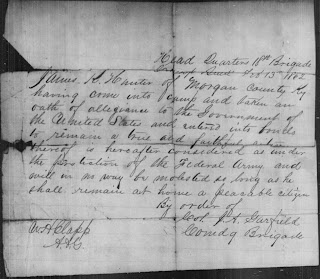 Head Quarters 18th Brigade
Feb 13th 1862
James H. Hunter of Morgan County Ky
having come into Camp and taken an
oath of allegiance to the Government of
the United States and entered into bonds
to remain a true and faithful
thereof is hereafter considered as under
the protection of the Federal Army and
will in no way be molested so long as he
shall remain at home a peacable citizen
By order of
Col J. A. Garfield
Comdg Brigade
W. H. Clapp
A.A.G.